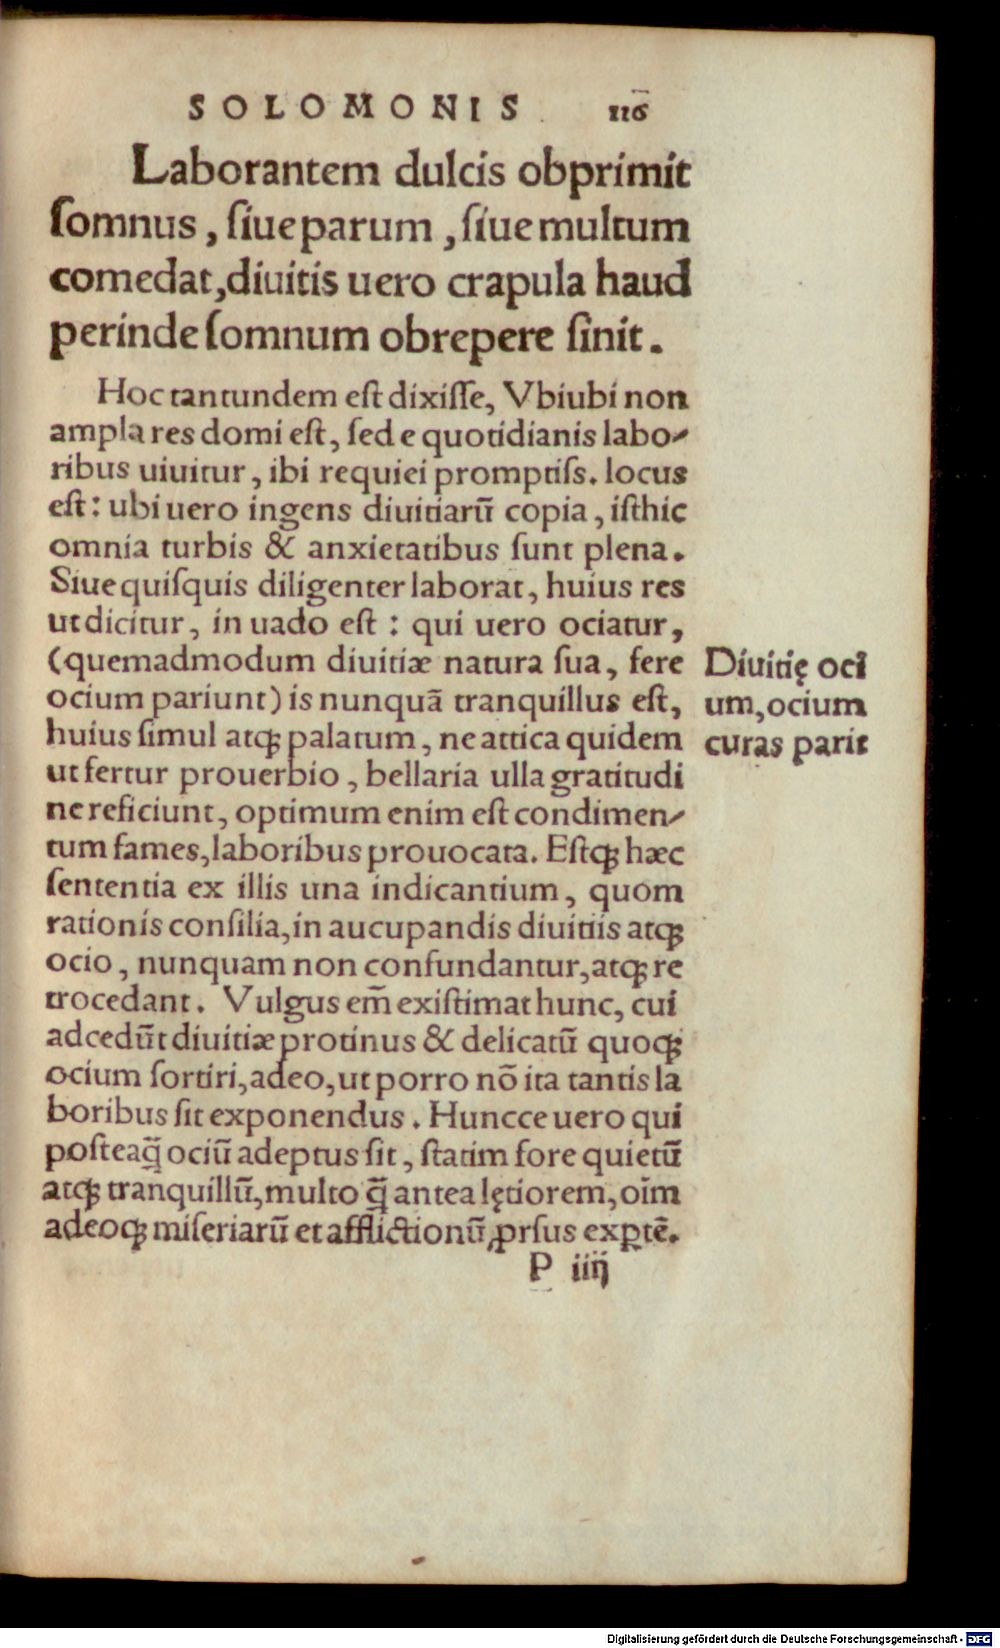 SOLOMONIS 116
Laborantem dulcis obprimit
ſomnus, ſiue parum, ſiue multum
comedat, diuitis uero crapula haud
perinde ſomnum obrepere ſinit.
Hoc tantundem eſt dixiſſe, Vbiubi non
ampla res domi eſt, ſed e quotidianis labo-
ribus uiuitur, ibi requiei promptiſs. locus
eſt: ubi uero ingens diuitiarũ copia, iſthic
omnia turbis & anxietatibus ſunt plena.
Siue quiſquis diligenter laborat, huius res
ut dicitur, in uado eſt: qui uero ociatur,
(quemadmodum diuitiæ natura ſua, fere
ocium pariunt) is nunquã tranquillus eſt,
huius ſimul atqꝫ palatum, ne attica quidem
ut fertur prouerbio, bellaria ulla gratitudi
ne reficiunt, optimum enim eſt condimen-
tum fames, laboribus prouocata. Eſtqꝫ hæc
ſententia ex illis una indicantium, quom
rationis conſilia, in aucupandis diuitiis atqꝫ
ocio, nunquam non confundantur, atqꝫ re
trocedant. Vulgus em̃ exiſtimat hunc, cui
adcedũt diuitiæ protinus & delicatũ quoqꝫ
ocium ſortiri, adeo, ut porro nõ ita tantis la
boribus ſit exponendus. Huncce uero qui
poſteaq̃ ociũ adeptus ſit, ſtatim fore quietũ
atqꝫ tranquillũ, multo q̃ antea lętiorem, oĩm
adeoqꝫ miſeriarũ et afflictionũ, ꝓrſus exꝑtẽ.
P iiij
Diuitię ocĩ
um, ocium
curas parit
Digitalisierung gefördert durch die Deutsche Forschungsgemeinschaft - DFG